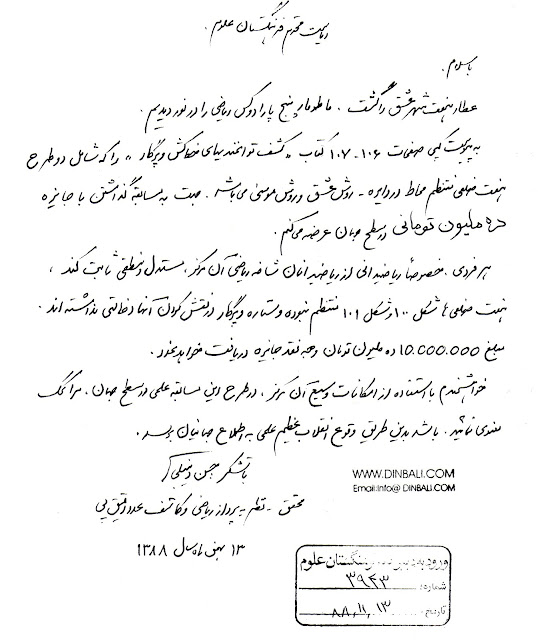 ریاست محترم فرهنگستان علوم.
با سلام.
عطار هفت شهر عشق را گشت. ما طومار پنج پارادوکس ریاضی را در نوردیدیم.
به پیوست کپی صفحات ۱۰۶-۱۰۷ کتاب «کشف توانمندیهای خط‌کش و پرگار» را که شامل دو طرح
هفت ضلعی منتظم محاط در دایره - روش عشق و روش موسی می‌باشد. جهت به مسابقه گذاشتن با جایزه
ده میلیون تومانی در سطح جهان عرضه می‌کنم.
هر فردی. خصوصاً ریاضیدانی از ریاضیدانان شاخه ریاضی آن مرکز، مستدل و منطقی ثابت کند،
هفت ضلعی‌ها شکل ۱۰۰ و شکل ۱۰۱ منتظم نبوده و ستاره و پرگار در نقش کردن آنها دخالتی نداشته‌اند.
مبلغ 10.000.000 ده میلیون تومان وجه نقد جایزه دریافت خواهد نمود.
خواهشمندم با استفاده از امکانات وسیع آن مرکز، در طرح این مسابقه علمی در سطح جهان، مرا کمک
معنوی نمائید. باشد بدین طریق وقوع انقلاب عظیم علمی به اطلاع جهانیان برسد.
با تشکر حسن
محقق - نظریه پرداز ریاضی و کاشف عدد دقیق پی
۱۳ بهمن ماه سال ۱۳۸۸
WWW.DINBALI.COM
Email:Info@ DINBALI.COM
ورود به دبیرخانه فرهنگستان علوم
شماره: ۳۹۴۳
تاریخ: ۸۸،۱۱،۱۳